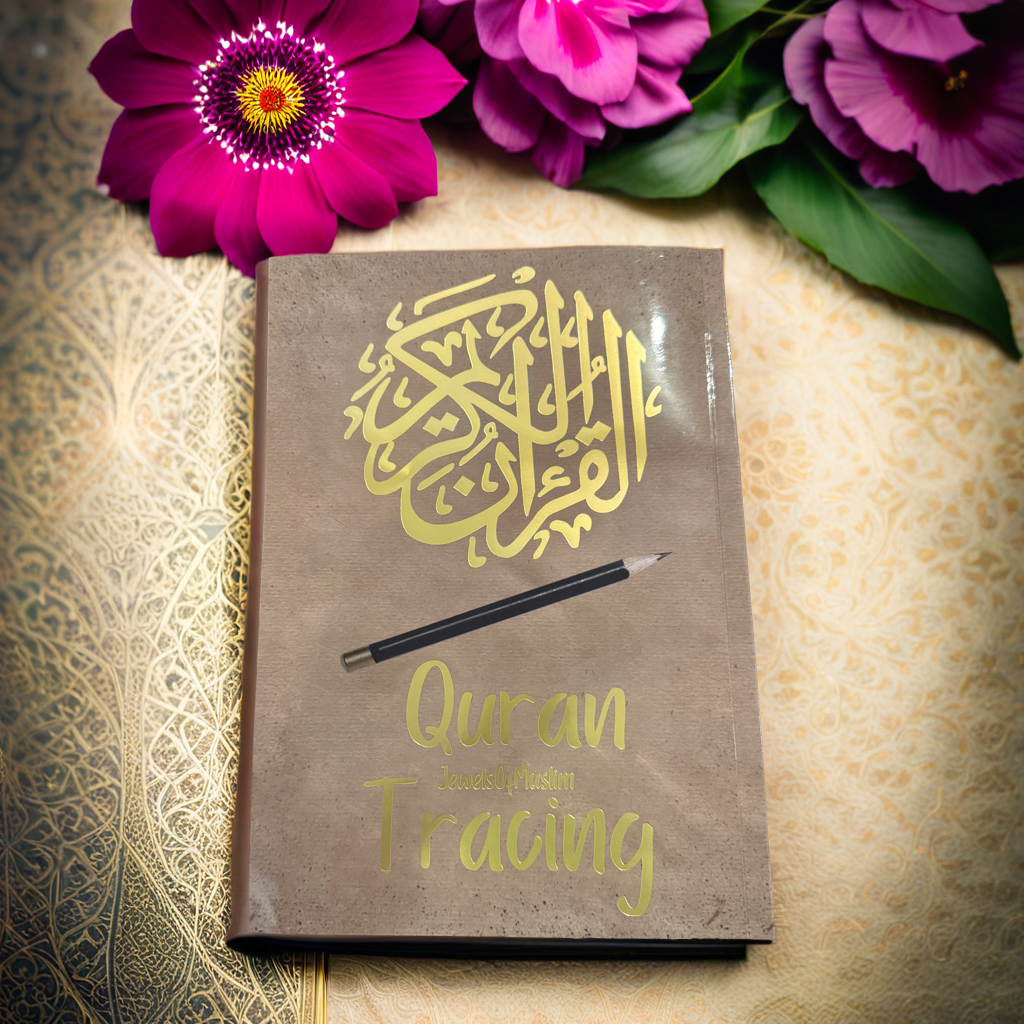 القرآن الكريم
Quran
JewelsOfMuslim
Tracing